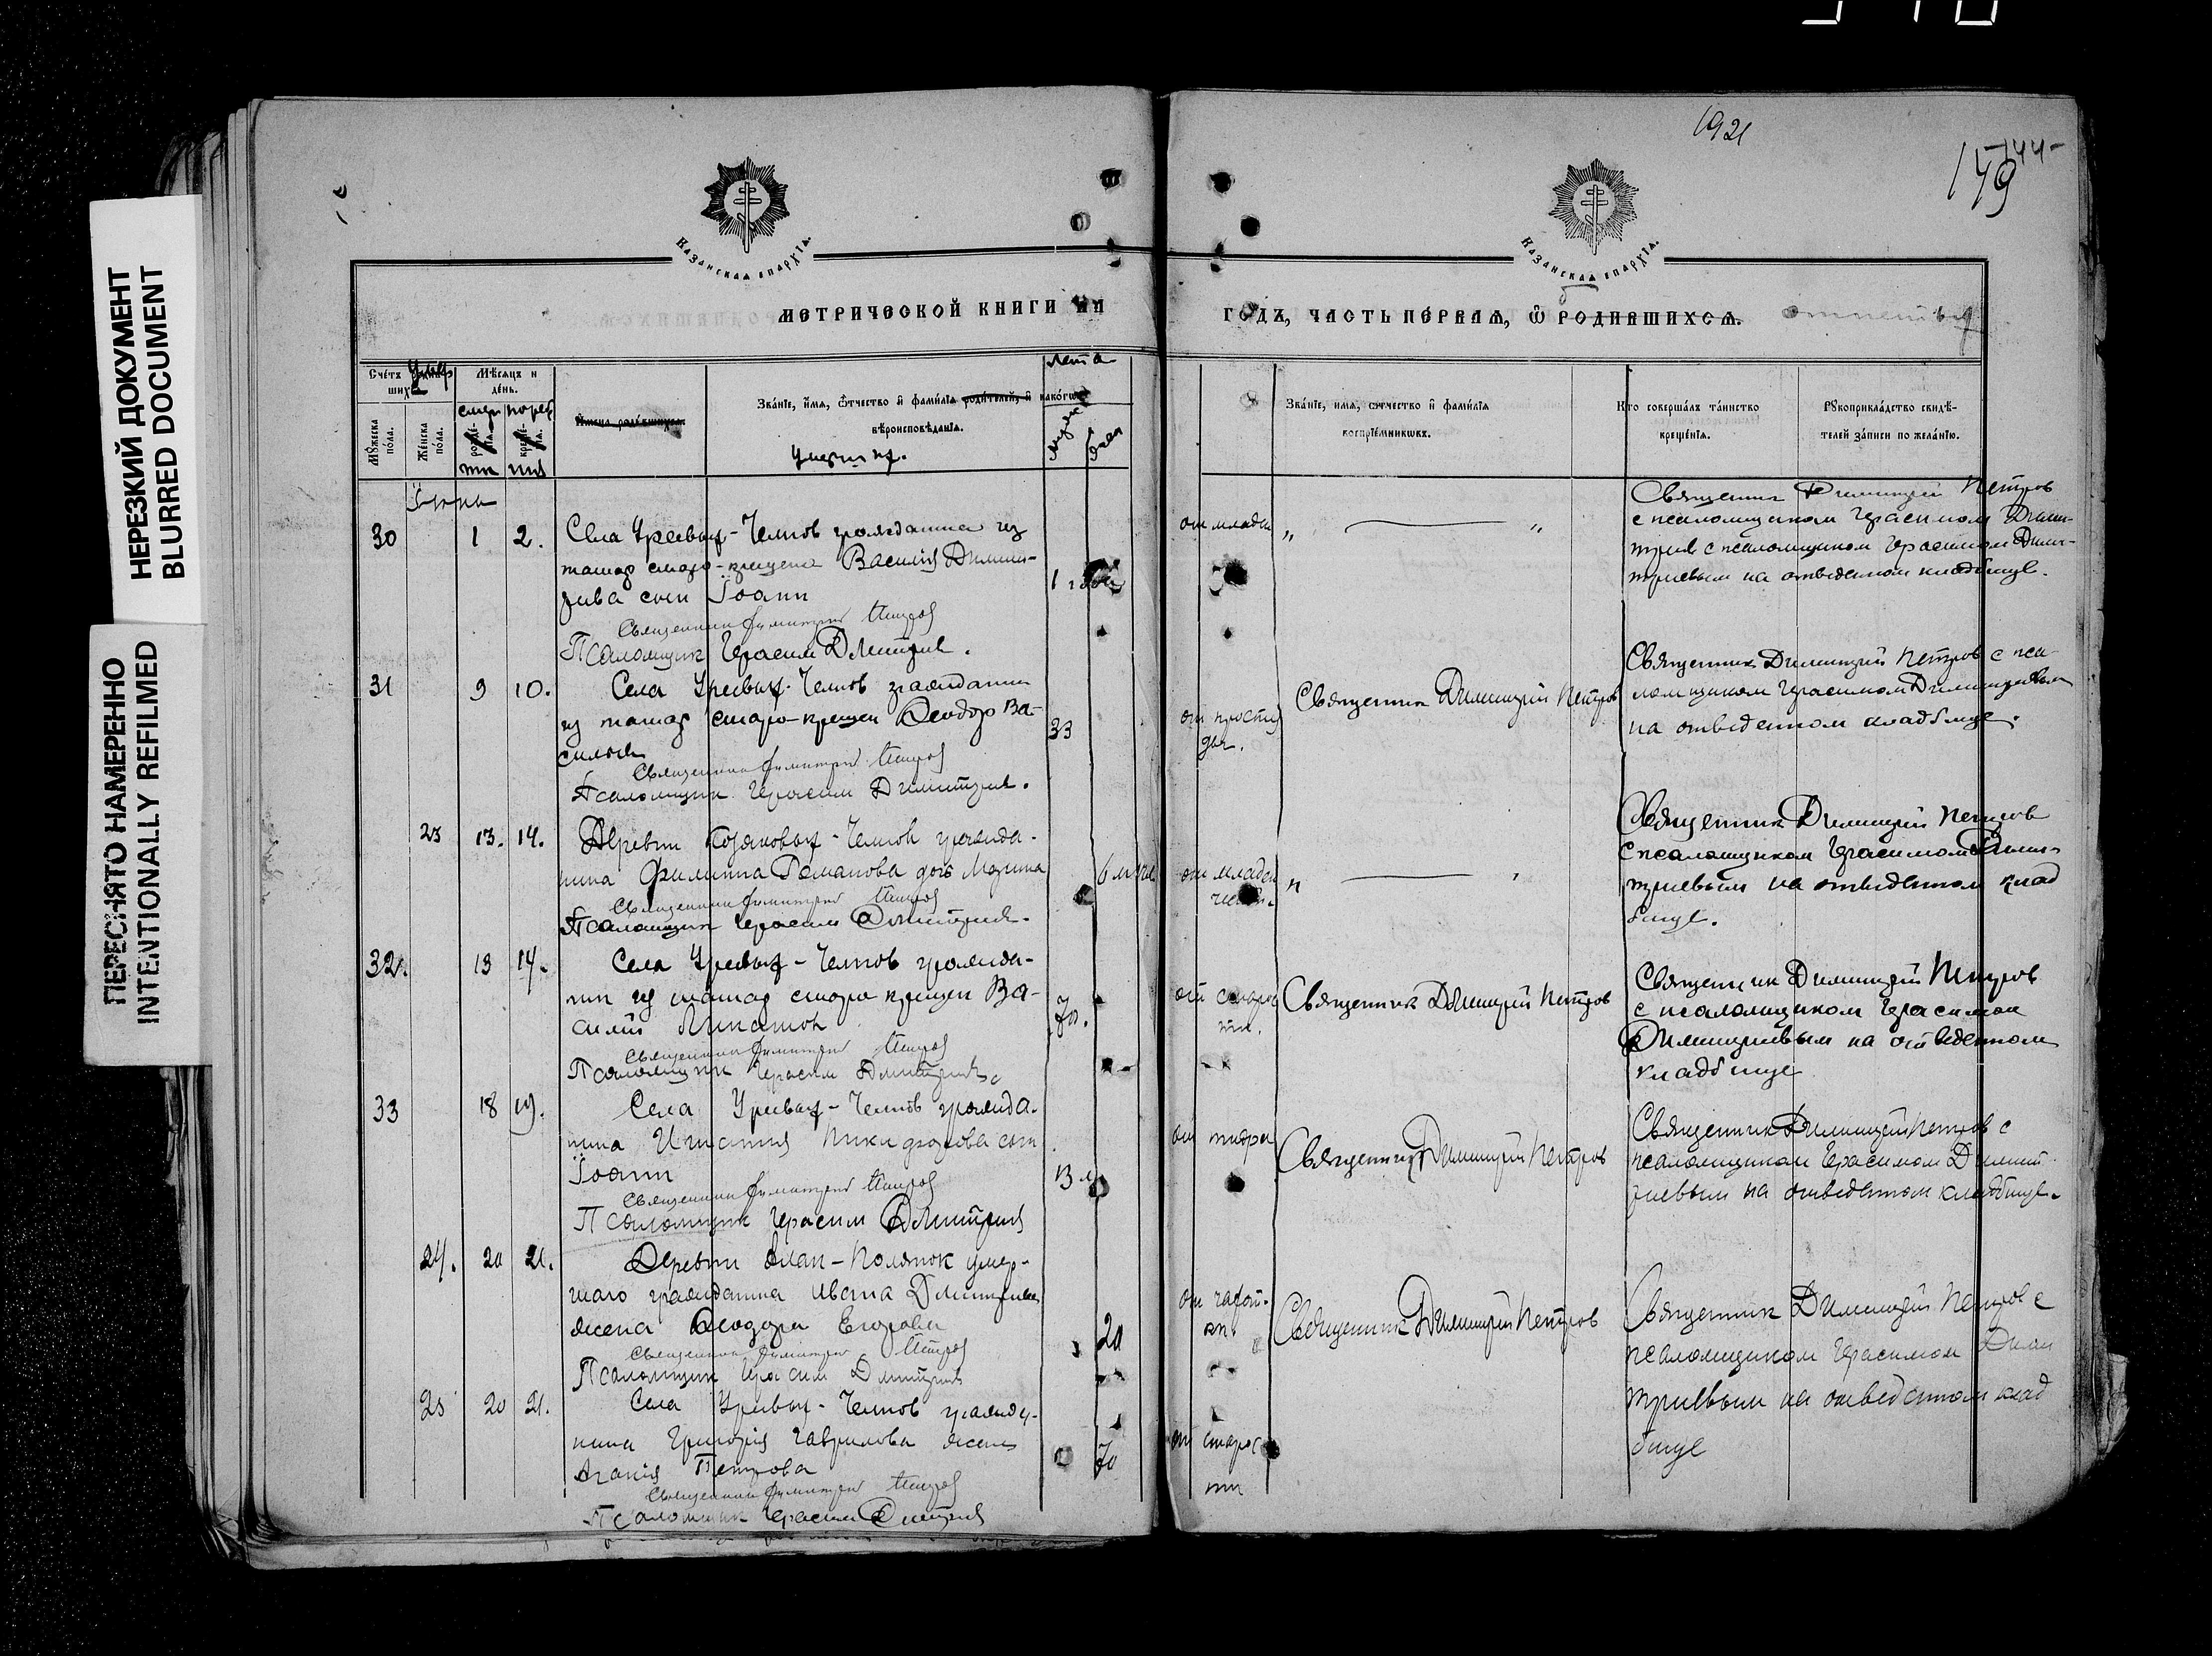 1921
149
-144-
НЕРЕЗКИЙ ДОКУМЕНТ
BLURRED DOCUMENT
ПЕРЕСНЯТО НАМЕРЕННО
INTENTIONALLY REFILMED
Казанская епархїа.
Казанская епархїа.
МЕТРИЧЕСКОЙ КНИГИ НА
ГОДЪ, ЧАСТЬ ПЕРВАЯ, Ѽ РОДИВШИХСЯ.
Счетъ умер
шихъ
Мѣсяцъ и
день.
Мꙋжеска
пола.
Женска
пола.
смер
ти
погреб
Имена родившихся.
Званїе, имя, ѻтчество и фамилїя родителей, и какогѡ
вѣроисповѣданїя.
умерших.
Лета
Званїе, имя, ѻтчество и фамилїя
воспрїемникѡвъ.
Кто совершалъ таинство
крещенїя.
Рꙋкоприкладство свидѣ-
телей записи по желанїю.
30
1
2.
Села Уреевых-Челнов гражданина из
татар старо-крещена Василия Димит-
риева сын Іоанн
1 года
Священник Димитрий Петров
Псаломщик Герасим Дмитриев.
от младен
Священник Димитрий Петров
с псаломщиком Герасимом Дими-
триев с псаломщиком Герасимом Дими-
триевым на отведенном кладбище.
31
9
10.
Села Уреевых-Челнов гражданин
из татар старо-крещен Феодор Ва-
сильев
33
Священник Димитрий Петров
Псаломщик Герасим Димитриев.
от просту
ды.
Священник Димитрий Петров
Священник Димитрий Петров с пса-
ломщиком Герасимом Димитриевым
на отведенном кладбище.
23
13.
14.
Деревни Козяковых-Челнов гражда-
нина Филиппа Романова дочь Марина
6 м
Священник Димитрий Петров
Псаломщик Герасим Дмитриев.
от младен
Священник Димитрий Петров
с псаломщиком Герасимом Дими-
триевым на отведенном клад
бище.
32.
13
14.
Села Уреевых-Челнов гражда-
нин из татар старо крещен Ва-
силий
70.
Священник Димитрий Петров
Псаломщик Герасим Дмитриев.
от старос
ти.
Священник Димитрий Петров
Священник Димитрий Петров
с псаломщиком Герасимом
Димитриевым на отведенном
кладбище
33
18
19.
Села Уреевых-Челнов гражда-
нина Игнатия Никифорова сын
Іоанн
13 л
Священник Димитрий Петров
Псаломщик Герасим Дмитриев
от тифа
Священник Димитрий Петров
Священник Димитрий Петров с
псаломщиком Герасимом Димит
риевым на отведенном кладбище.
24.
20
21.
Деревни Алан-Полянок умер-
шаго гражданина Ивана Дмитриева
жена Феодора Егорова
20
Священник Димитрий Петров
Псаломщик Герасим Дмитриев
от чахот-
ки
Священник Димитрий Петров
Священник Димитрий Петров с
псаломщиком Герасимом Дими
триевым на отведенном клад
25
20
21.
Села Уреевых-Челнов гражда-
нина Григория Гаврилова жена
Агапия Петрова
70
Священник Димитрий Петров
Псаломщик Герасим Дмитриев
от старос
ти
бище